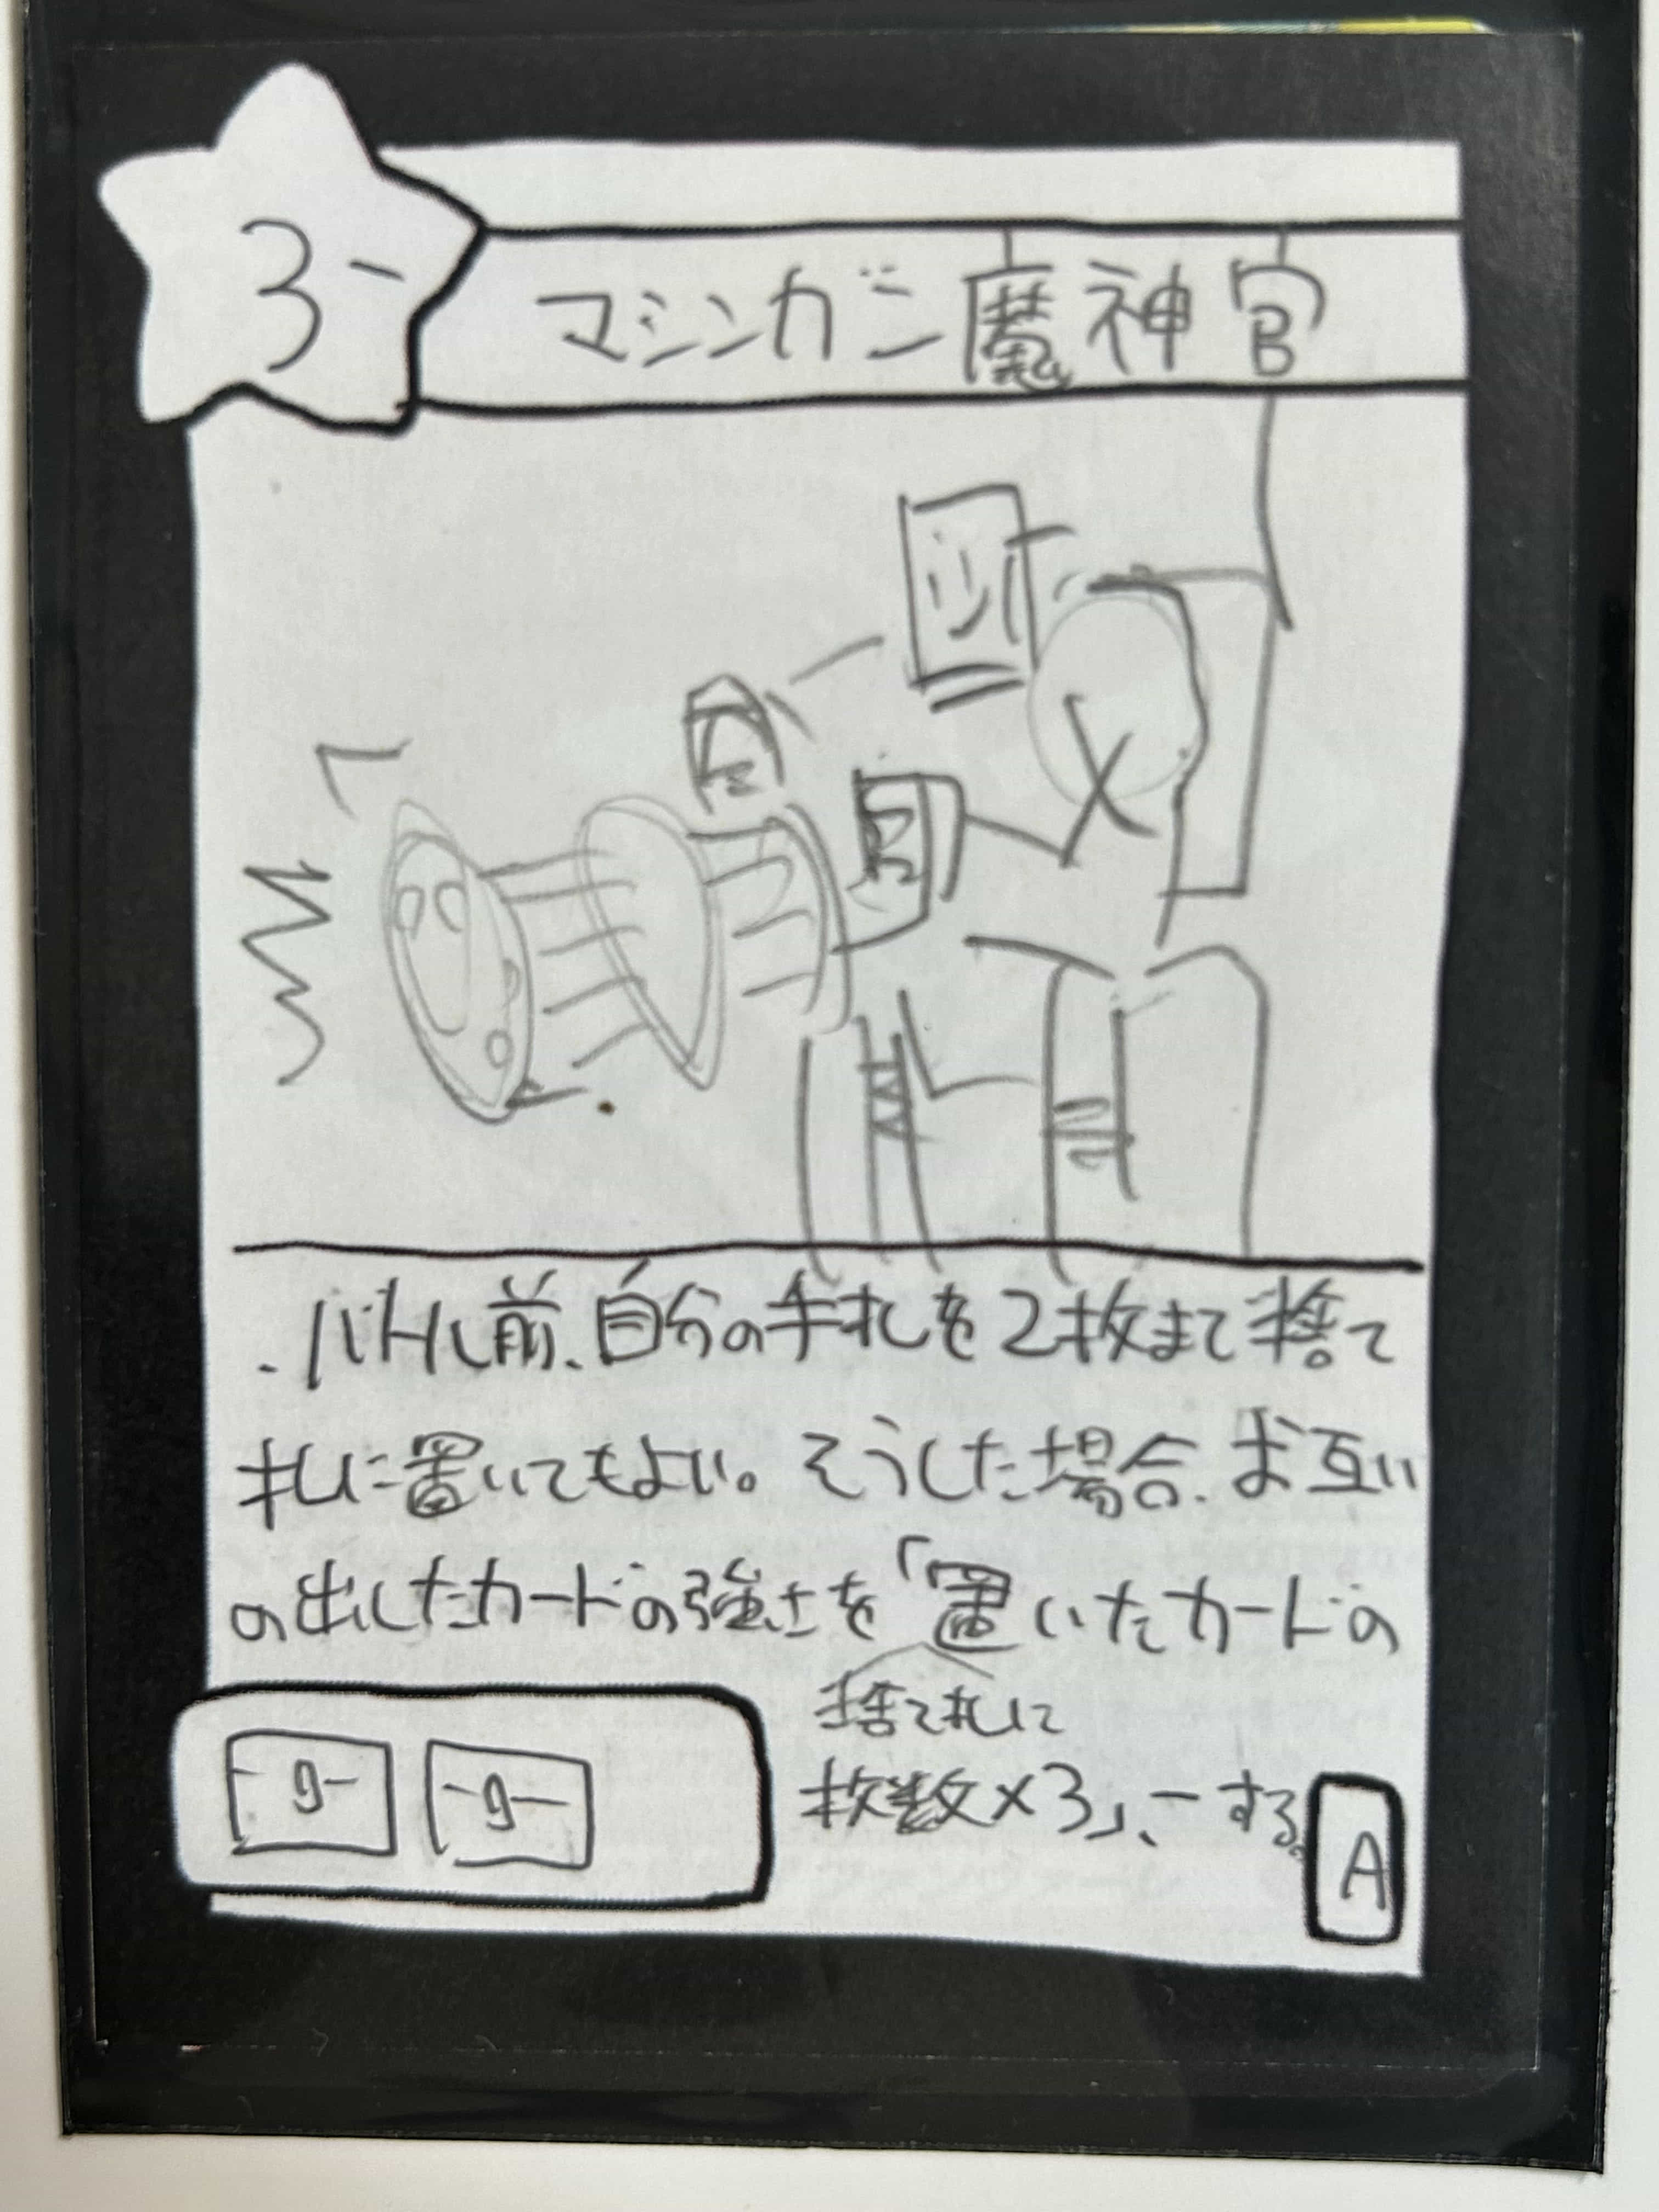 3-
マシンガン魔神官
・バトル前、自分の手札を2枚まで捨て
札に置いてもよい。そうした場合、お互い
の出したカードの強さを「置いたカードの
捨て札に
枚数×3」、ーする。
-9- -9-
A